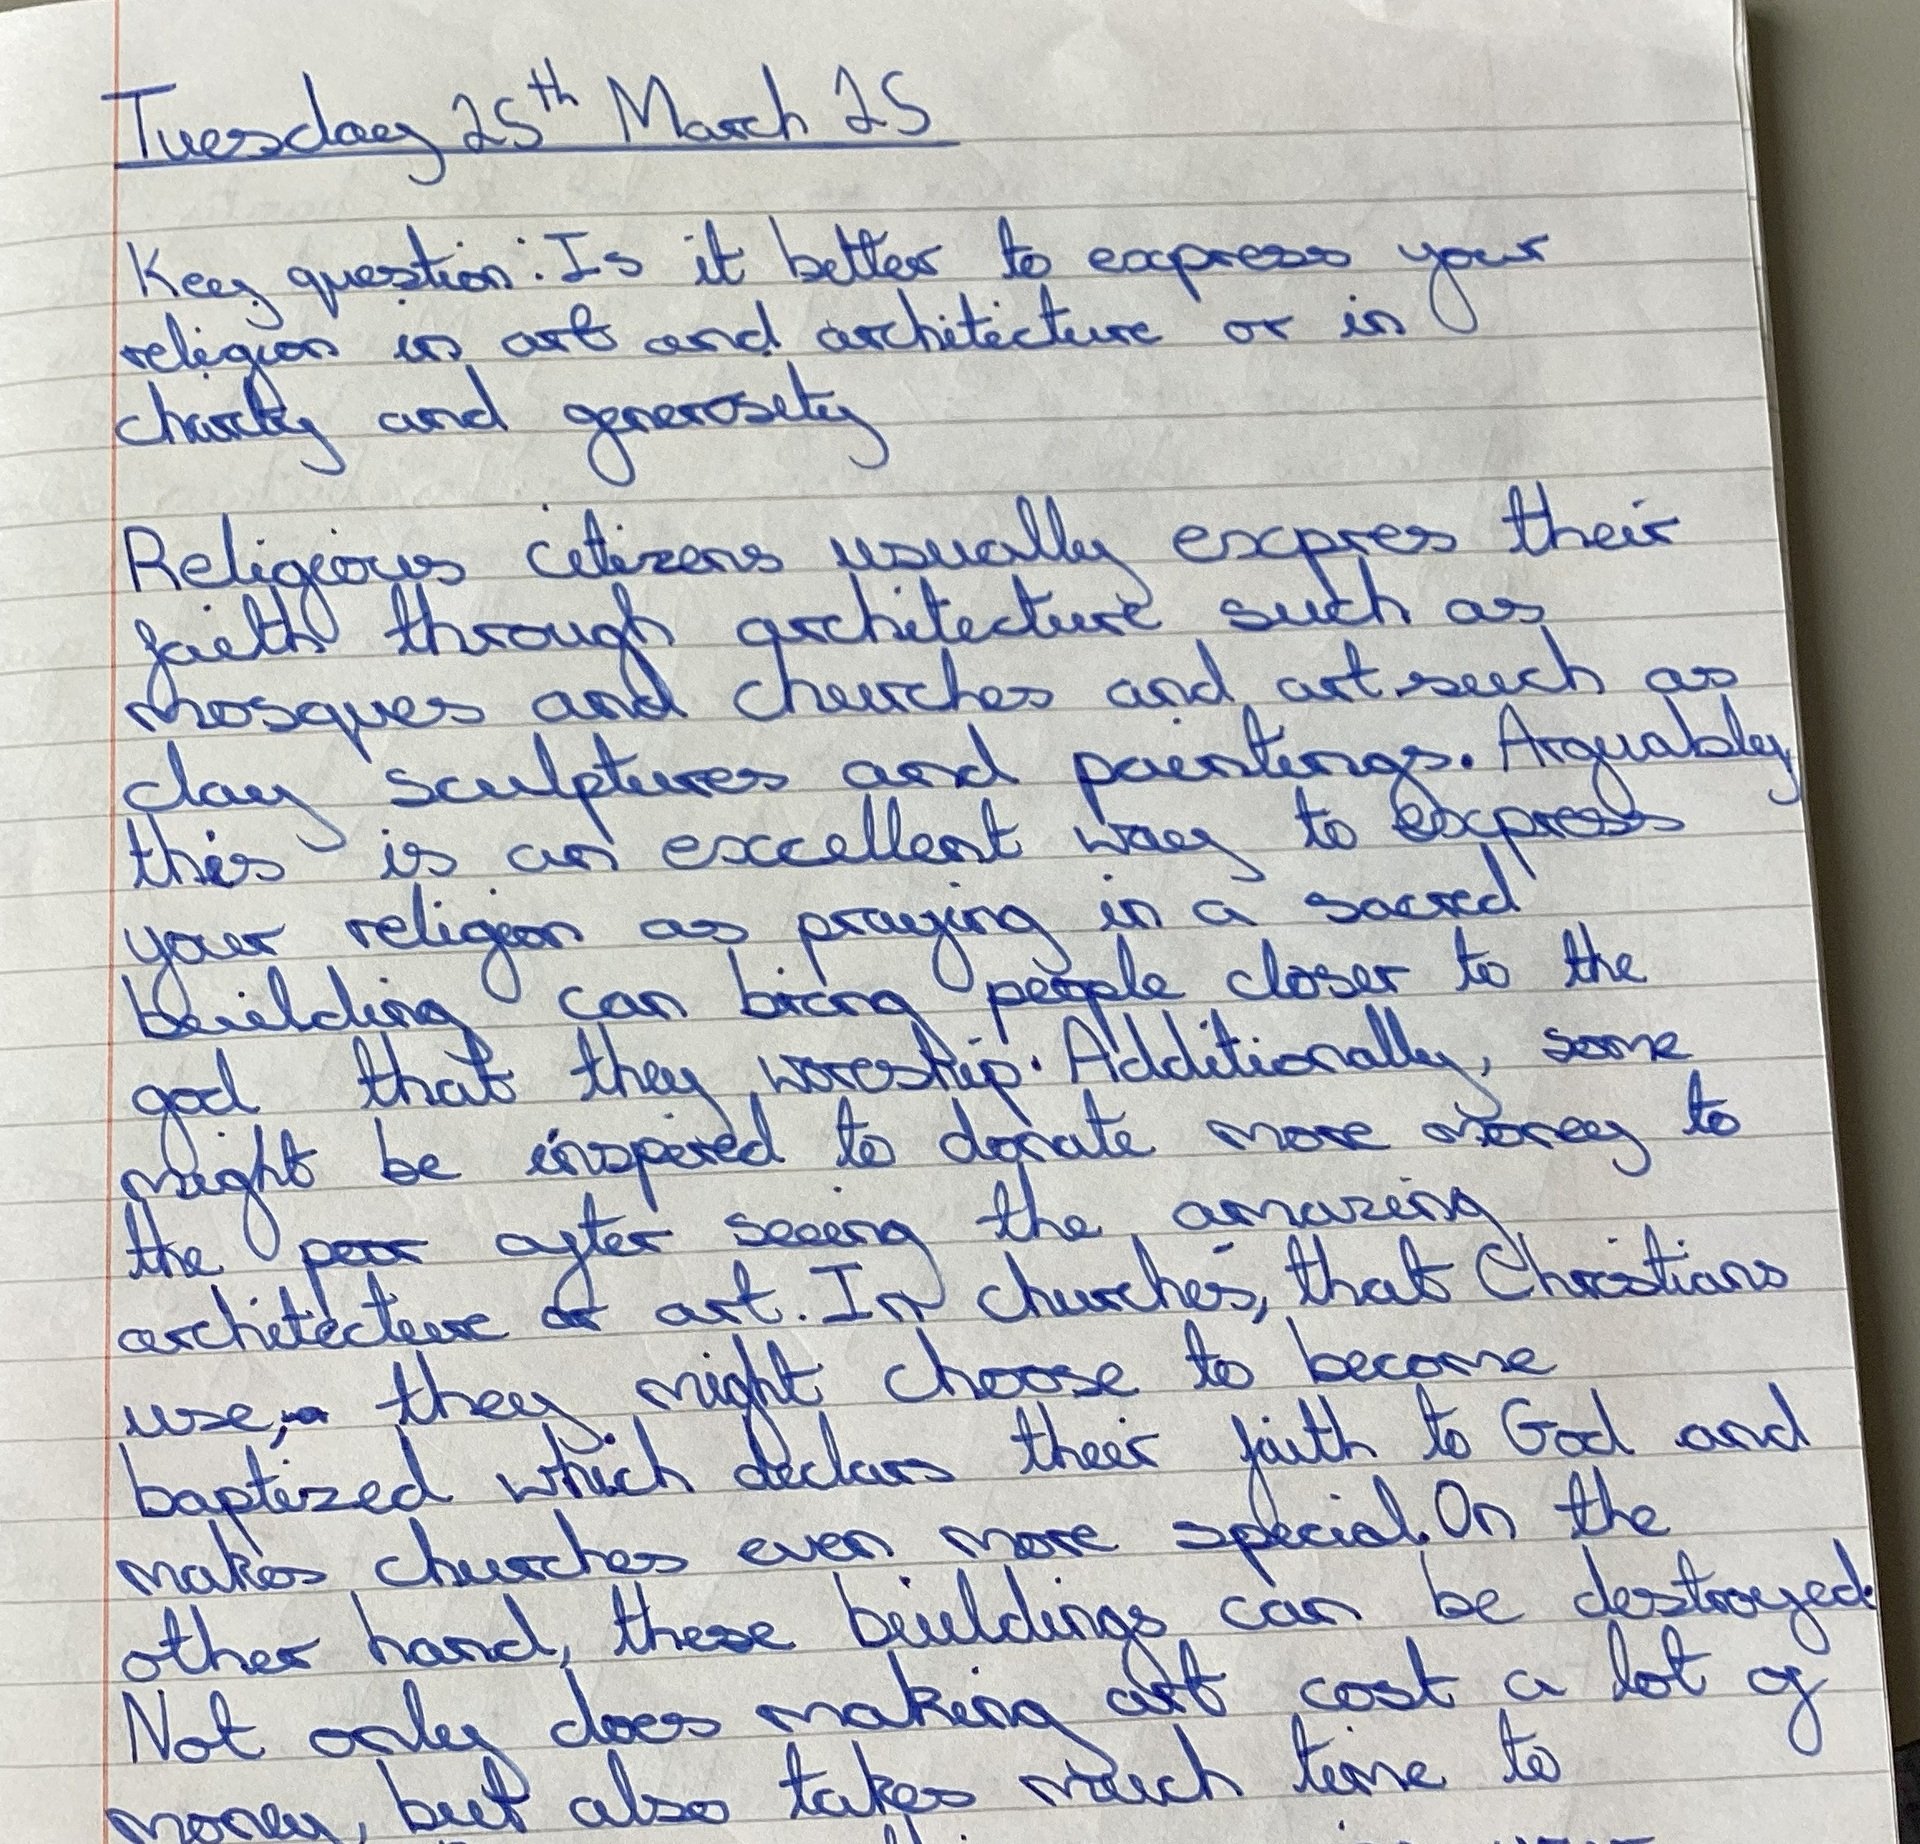 Tuesday 25th March 25
Key question: Is it better to express your
religion in art and architecture or in
charity and generosity
Religious citizens usually expres their
faith through architecture such as
mosques and churches and art such as
clay sculptures and paintings. Arguably
this is an excellent way to express
your religion as praying in a sacred
building can bring people closer to the
god that they woreship. Additionally, some
might be inspired to donate more money to
the poor after seeing the amazing
architecture or art. In churches, that Christians
use, they might choose to become
baptized which declars their faith to God and
makes churches even more special. On the
other hand, these buildings can be destroyed.
Not only does making art cost a lot of
money, but also takes much time to